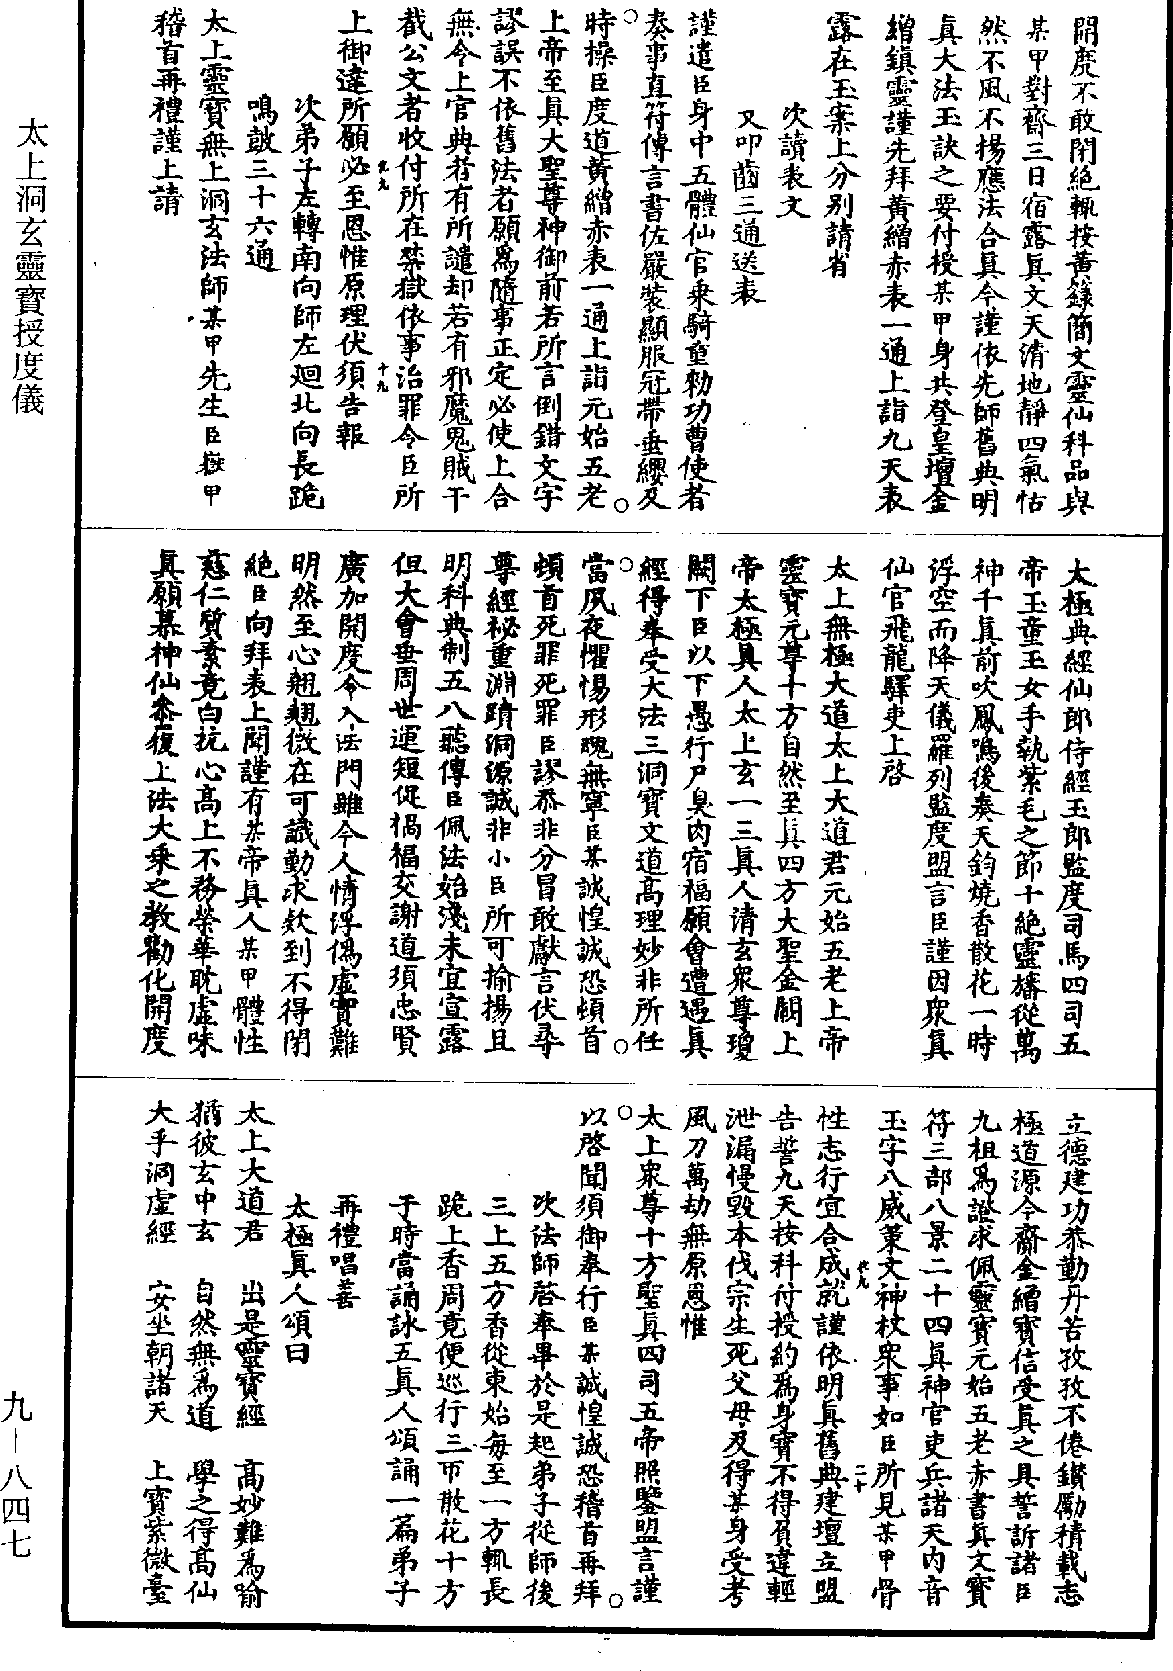 開度不敢閉絕輒按黃籙簡文靈仙科品與
某甲對齋三日宿露眞文天清地靜四氣恬
然不風不揚應法合眞今謹依先師舊典明
眞大法玉訣之要付授某甲身共登皇壇金
繒鎮靈謹先拜黃繒赤表一通上詣九天表
露在玉案上分別請省
次讀表文
又叩齒三通送表
謹遣臣身中五體仙官乘騎重勑功曹使者
奏事直符傳言書佐嚴裝顯服冠帶垂纓及
時操臣度道黃繒赤表一通上詣元始五老
上帝至眞大聖尊神御前若所言倒錯文字
謬誤不依舊法者願爲隨事正定必使上合
無令上官典者有所譴却若有邪魔鬼賊干
截公文者收付所在禁獄依事治罪令臣所
上御達所願必至恩惟原理伏須告報
次弟子左轉南向師左廻北向長跪
鳴鼓三十六通
太上靈寶無上洞玄法師某甲先生臣嶽甲
稽首再禮謹上請
太極典經仙郎侍經玉郎監度司馬四司五
帝玉童玉女手執紫毛之節十絕靈旛從萬
神千眞前吹鳳鳴後奏天鈞燒香散花一時
浮空而降天儀羅列監度盟言臣謹因衆眞
仙官飛龍驛吏上啓
太上無極大道太上大道君元始五老上帝
靈寶元尊十方自然至眞四方大聖金闕上
帝太極眞人太上玄一三眞人清玄衆尊瓊
闕下臣以下愚行尸臭肉宿福願會遭遇眞
經得奉受大法三洞寶文道高理妙非所任
當夙夜懼惕形魄無寧臣某誠惶誠恐頓首
頓首死罪死罪臣謬忝非分冒敢獻言伏尋
尊經祕重淵蹟洞源誠非小臣所可揄揚且
明科典制五八聽傳臣佩法始淺未宜宣露
但大會垂周世運短促禍福交謝道須忠賢
廣加開度令入法門雖今人情浮僞虛實難
明然至心翹翹微在可識勤求欵到不得閉
絕臣向拜表上聞謹有某帝眞人某甲體性
慈仁質素竟白抗心高上不務榮華耽虛味
眞願慕神仙叅復上法大乘之教勸化開度
立德建功恭勤丹苦孜孜不倦鑚勵積載志
極道源今齋金繒寶信受眞之具誓訴諸臣
九祖爲證求佩靈寶元始五老赤書眞文寶
符三部八景二十四眞神官吏兵諸天內音
玉字八威策文神杖衆事如臣所見某甲骨
性志行宜合成就謹依明眞舊典建壇立盟
告誓九天按科付授約爲身寶不得負違輕
泄漏慢毀本伐宗生死父母及得某身受考
風刀萬劫無原恩惟
太上衆尊十方聖眞四司五帝照鑒盟言謹
以啓聞須御奉行臣某誠惶誠恐稽首再拜
次法師啓奉畢於是起弟子從師後
三上五方香從東始每至一方輒長
跪上香周竟便巡行三帀散花十方
于時當誦詠五眞人頌誦一篇弟子
再禮唱善
太極眞人頌曰
太上大道君　出是靈寶經　高妙難爲喻
猶彼玄中玄　自然無爲道　學之得高仙
大乎洞虛經　安坐朝諸天　上寶紫微臺
太上洞玄靈寶授度儀
九－八四七